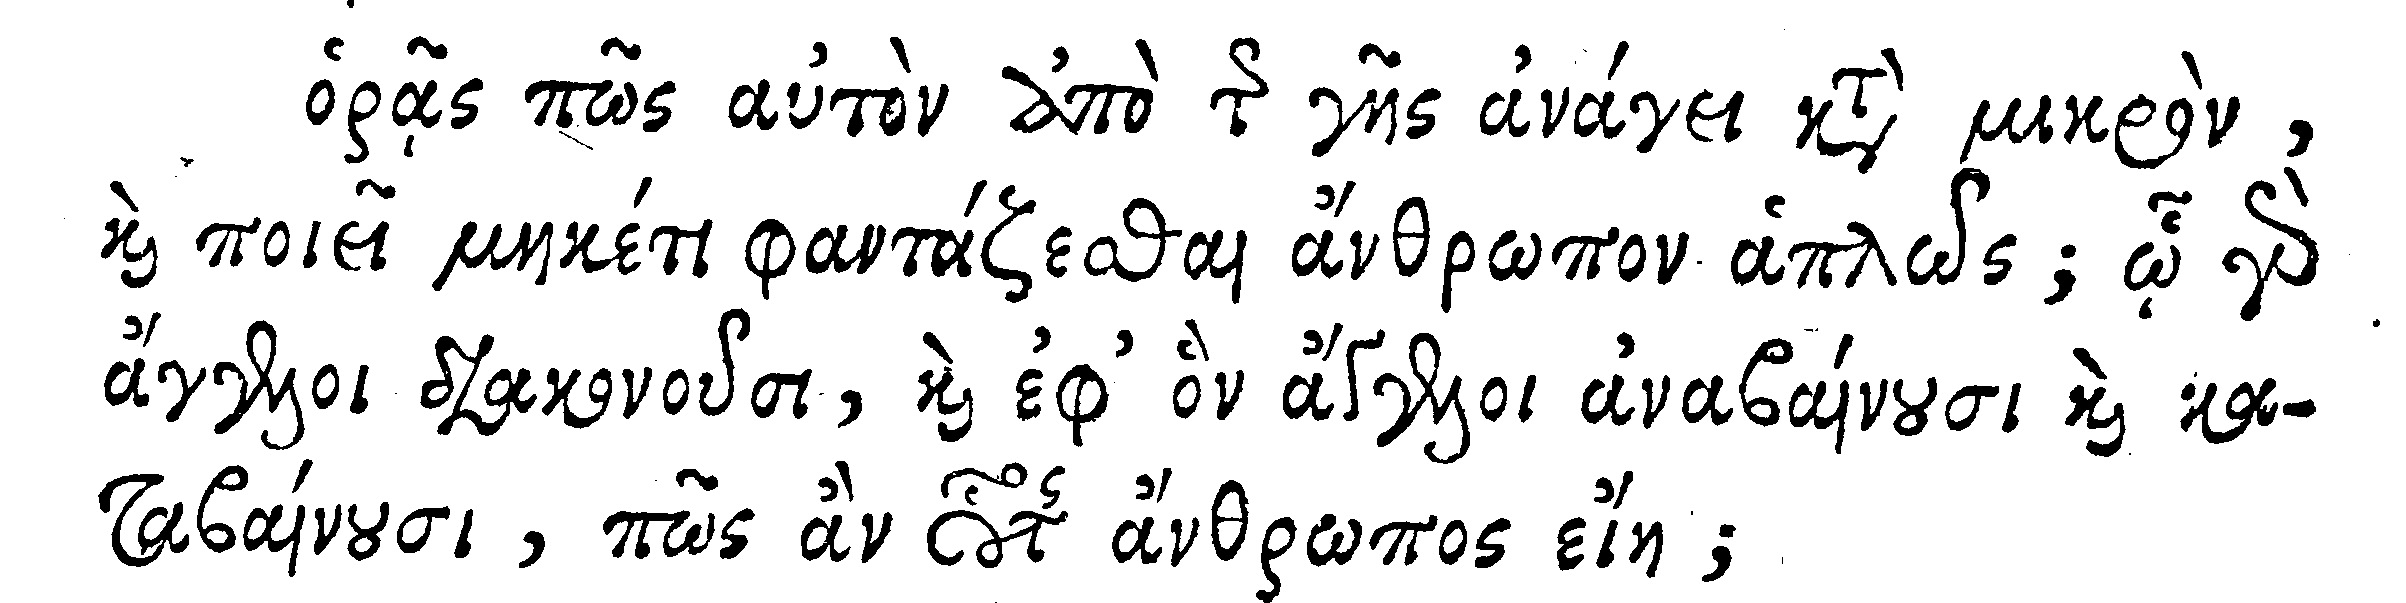 ὁρᾷς πῶς αὐτὸν ἀπὸ τῆς γῆς ἀνάγει κατὰ μικρὸν,
καὶ ποιεῖ μηκέτι φαντάζεσθαι ἄνθρωπον ἁπλῶς; ᾧ γὰρ
ἄγγελοι διακονοῦσι, καὶ ἐφ᾽ ὃν ἄγγελοι ἀναβαίνουσι καὶ κα-
ταβαίνουσι, πῶς ἂν οὗτος ἄνθρωπος εἴη;